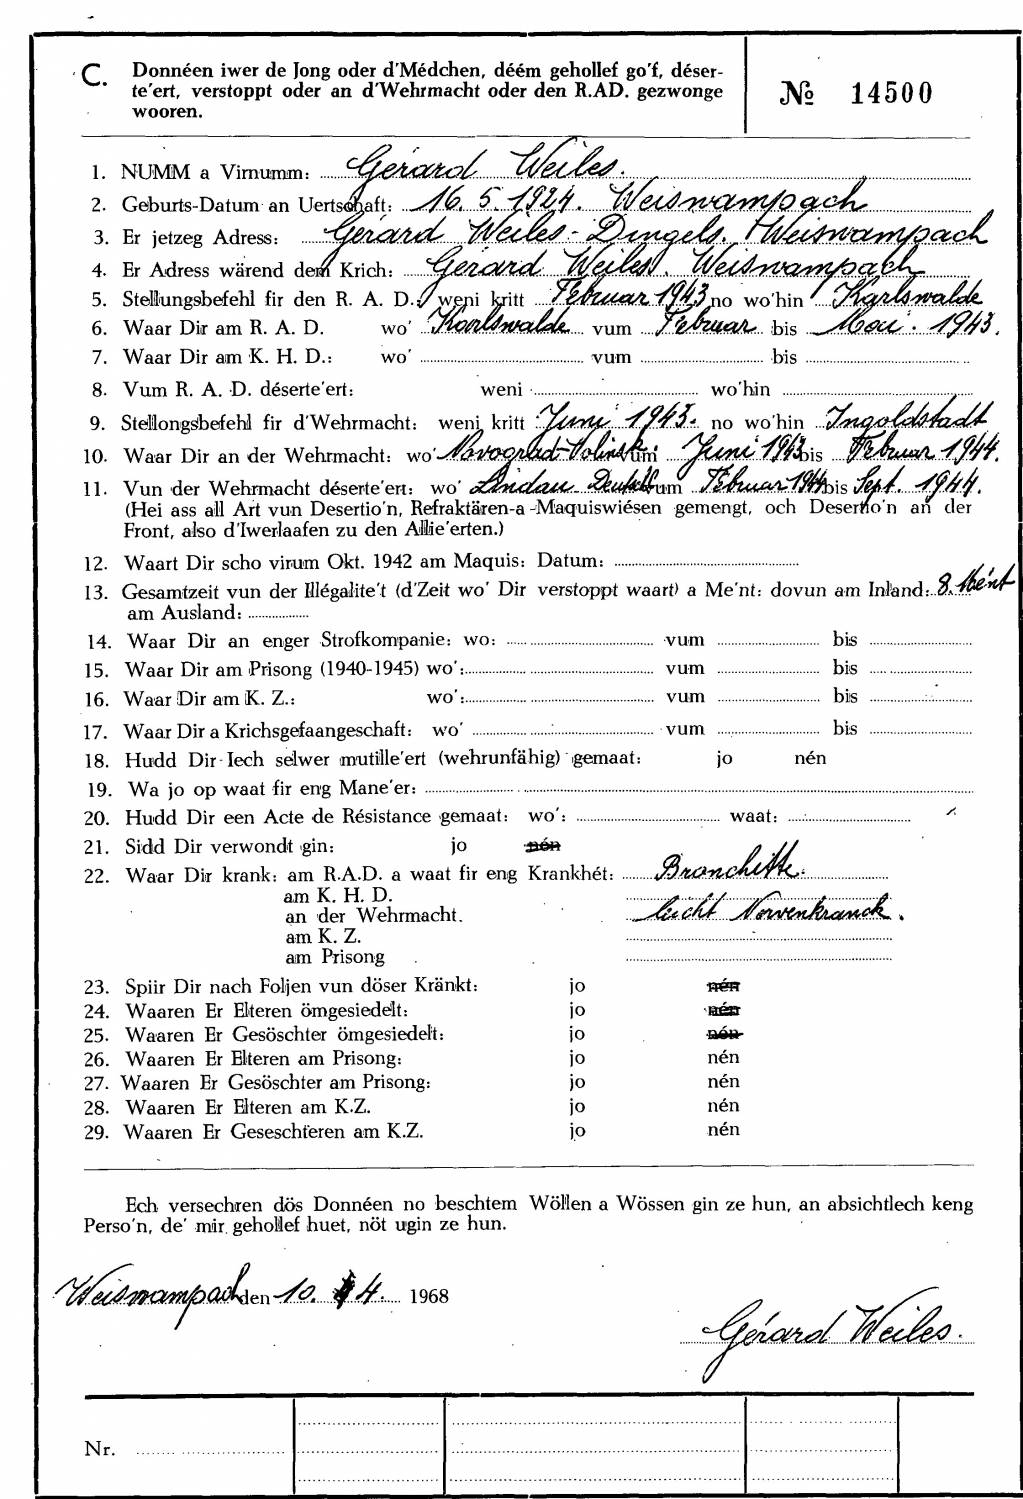 C. Donnéen iwer de Jong oder d'Médchen, déém gehollef go'f, déser-
te'ert, verstoppt oder an d'Wehrmacht oder den R.AD. gezwonge
wooren.
№ 14500
1. NUMM a Virnumm: Gérard Weiles.
2. Geburts-Datum an Uertschaft: 16. 5. 1924. Weiswampach
3. Er jetzeg Adress: Gérard Weiles-Dingels. Weiswampach
4. Er Adress wärend dem Krich: Gérard Weiles. Weiswampach
5. Stellungsbefehl fir den R. A. D.: weni kritt Februar 1943 no wo'hin Karlswalde
6. Waar Dir am R. A. D. wo' Karlswalde vum Februar bis Mai. 1943.
7. Waar Dir am K. H. D.: wo' vum bis
8. Vum R. A. D. déserte'ert: weni wo'hin
9. Stellongsbefehl fir d'Wehrmacht: weni kritt Juni 1943. no wo'hin Ingoldstadt
10. Waar Dir an der Wehrmacht: wo' Novograd-Volinsk vum Juni 1943 bis Februar 1944.
11. Vun der Wehrmacht déserte'ert: wo' Lindau vum Februar 1944 bis Sept. 1944.
(Hei ass all Art vun Desertio'n, Refraktären-a-Maquiswiésen gemengt, och Desertio'n an der
Front, also d'Iwerlaafen zu den Allie'erten.)
12. Waart Dir scho virum Okt. 1942 am Maquis: Datum:
13. Gesamtzeit vun der Illégalite't (d'Zeit wo' Dir verstoppt waart) a Me'nt: dovun am Inland: 8. Mént
am Ausland:
14. Waar Dir an enger Strofkompanie: wo: vum bis
15. Waar Dir am Prisong (1940-1945) wo': vum bis
16. Waar Dir am K. Z.: wo': vum bis
17. Waar Dir a Krichsgefaangeschaft: wo' vum bis
18. Hudd Dir Iech selwer mutille'ert (wehrunfähig) gemaat: jo nén
19. Wa jo op waat fir eng Mane'er:
20. Hudd Dir een Acte de Résistance gemaat: wo': waat:
21. Sidd Dir verwondt gin: jo nén
22. Waar Dir krank: am R.A.D. a waat fir eng Krankhét: Bronchitte.
am K. H. D.
an der Wehrmacht. leicht Nervenkranck.
am K. Z.
am Prisong
23. Spiir Dir nach Foljen vun döser Kränkt: jo nén
24. Waaren Er Elteren ömgesiedelt: jo nén
25. Waaren Er Gesöschter ömgesiedelt: jo nén
26. Waaren Er Elteren am Prisong: jo nén
27. Waaren Er Gesöschter am Prisong: jo nén
28. Waaren Er Elteren am K.Z. jo nén
29. Waaren Er Geseschteren am K.Z. jo nén
Ech versechren dös Donnéen no beschtem Wöllen a Wössen gin ze hun, an absichtlech keng
Perso'n, de' mir gehollef huet, nöt ugin ze hun.
Weiswampach den 10. 4. 1968
Gérard Weiles.
Nr.